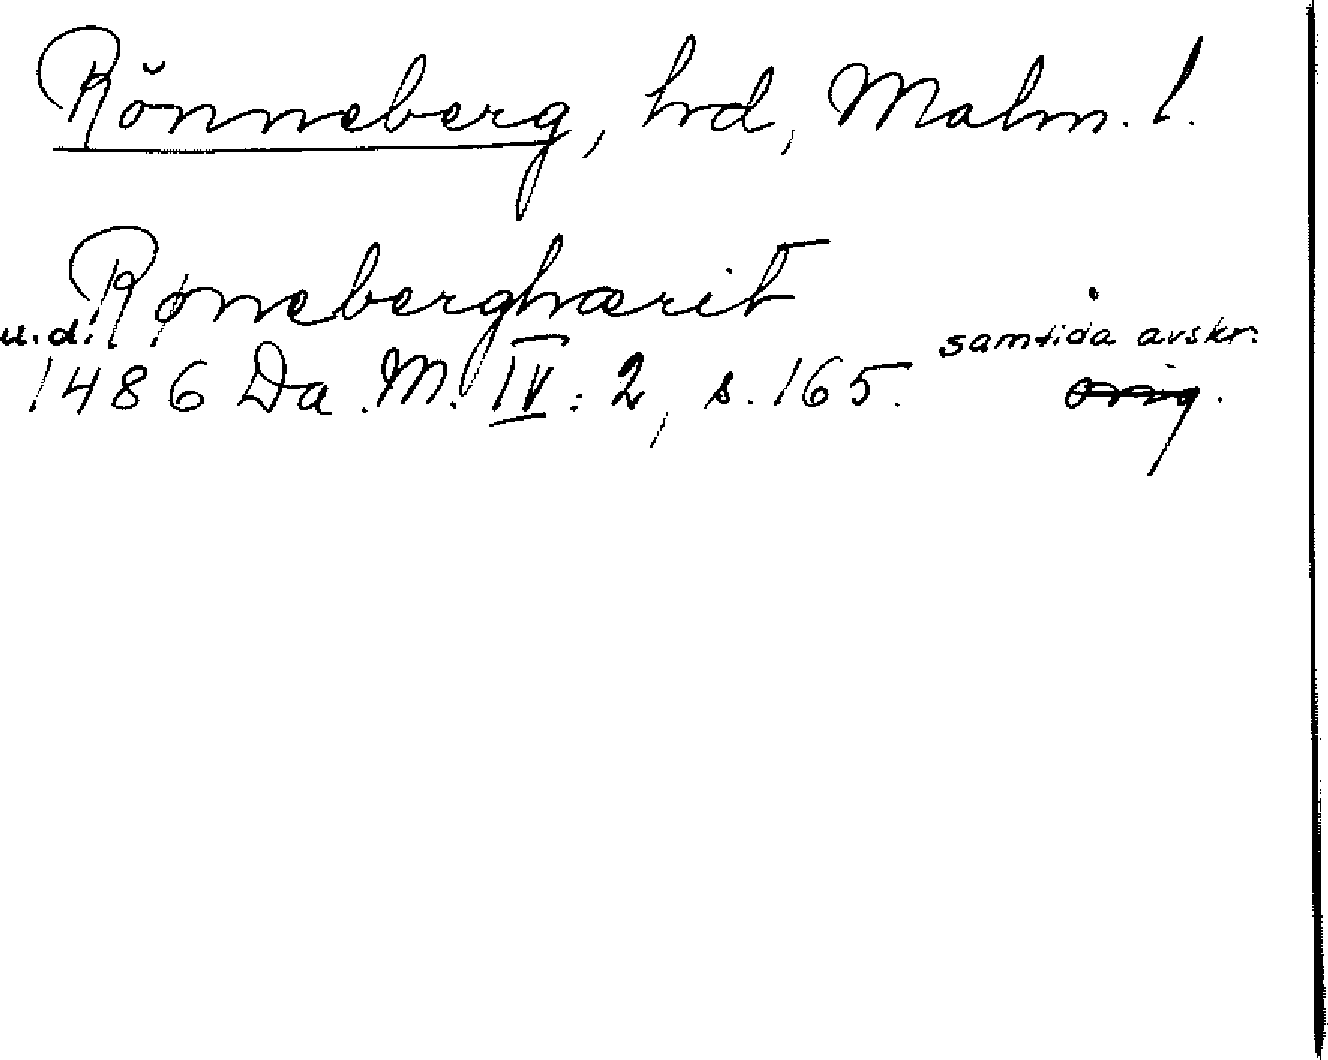 Rönneberg, hrd, Malm. l.
Røneberghærit
u.d. samtida avskr.
1486 Da. M. IV: 2, s. 165. orig.